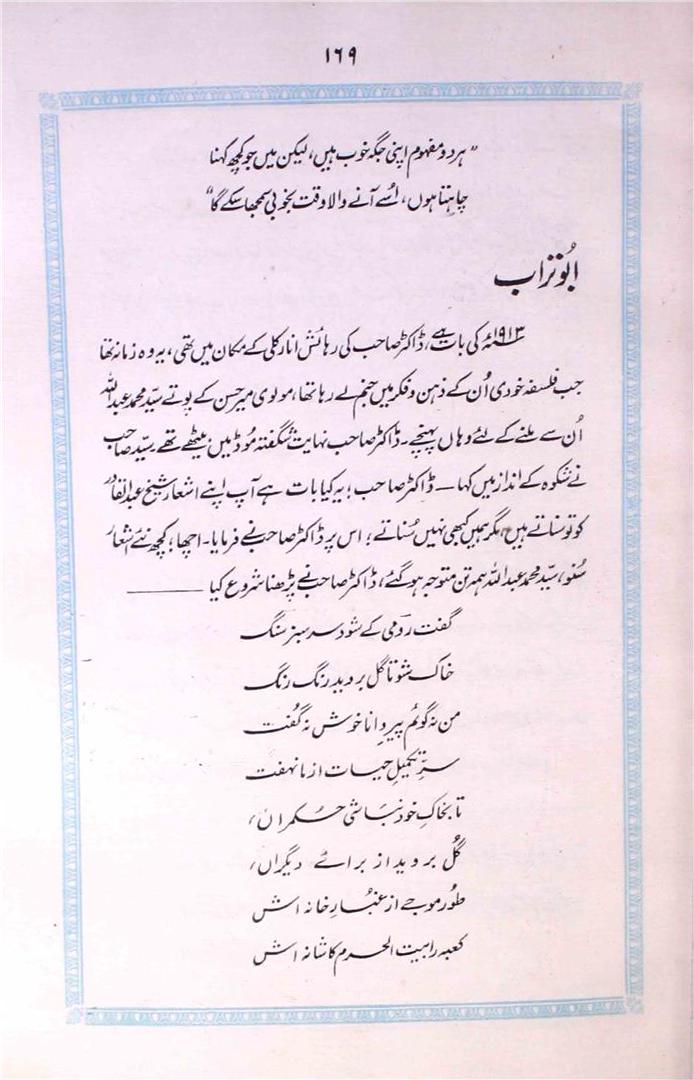 ۱۶۹
”ہر دو مفہوم اپنی جگہ خوب ہیں، لیکن میں جو کچھ کہنا
چاہتا ہوں، اُسے آنے والا وقت بخوبی سمجھا سکے گا“
ابُو تراب
۱۹۱۳ء کی بات ہے، ڈاکٹر صاحب کی رہائش انارکلی کے مکان میں تھی، یہ وہ زمانہ تھا
جب فلسفہ خودی اُن کے ذہن و فکر میں جنم لے رہا تھا، مولوی میر حسن کے پوتے سیّد محمد عبداللہ
اُن سے ملنے کے لئے وہاں پہنچے۔ ڈاکٹر صاحب نہایت شگفتہ مُوڈ میں بیٹھے تھے سیّد صاحب
نے شکوہ کے انداز میں کہا — ڈاکٹر صاحب! یہ کیا بات ہے آپ اپنے اشعار شیخ عبدالقادر
کو تو سناتے ہیں، مگر ہمیں کبھی نہیں سُناتے؛ اس پر ڈاکٹر صاحب نے فرمایا۔ اچھا! کچھ نئے اشعار
سُنو، سیّد محمد عبداللہ ہمہ تن متوجہ ہو گئے، ڈاکٹر صاحب نے پڑھنا شروع کیا ———
گفت رومی کے شود سر سبز سنگ
خاک شو تا گل بروید رنگ رنگ
من نہ گوئم پیرِ دانا خوش نہ گُفت
سرِّ تکمیلِ حیات از ما نہفت
تا بخاکِ خود نباشی حکمراں،
گُل بروید از برائے دیگراں،
طُور موجے از غبارِ خانہ اش
کعبہ را بیت الحرم کاشانہ اش